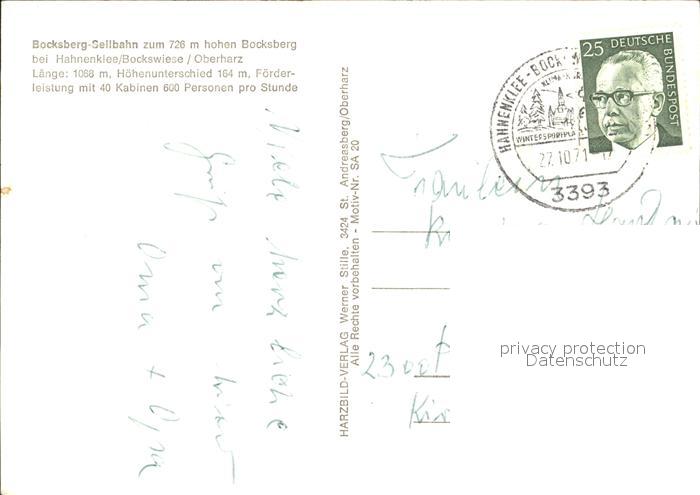 Bocksberg-Seilbahn zum 726 m hohen Bocksberg
bei Hahnenklee/Bockswiese / Oberharz
Länge: 1068 m, Höhenunterschied 164 m, Förder-
leistung mit 40 Kabinen 600 Personen pro Stunde
Viele herzliche
Grüße von hier
Oma + Opa
HARZBILD-VERLAG Werner Stille, 3424 St. Andreasberg/Oberharz
Alle Rechte vorbehalten - Motiv-Nr. SA 20
25 DEUTSCHE
BUNDESPOST
HAHNENKLEE-BOCK
WINTERSPORTPLA
27.10.71
3393
Fräulein
2300
privacy protection
Datenschutz